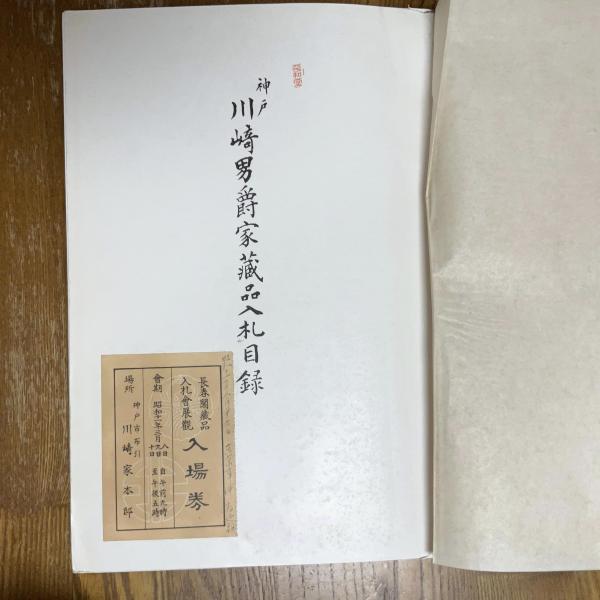 神戸
川崎男爵家蔵品入札目録
長春閣蔵品
入札會展觀
入場券
會期 昭和十一年三月
八日
九日
十日
自午前九時
至午後五時
場所 神戸市布引
川崎家本邸